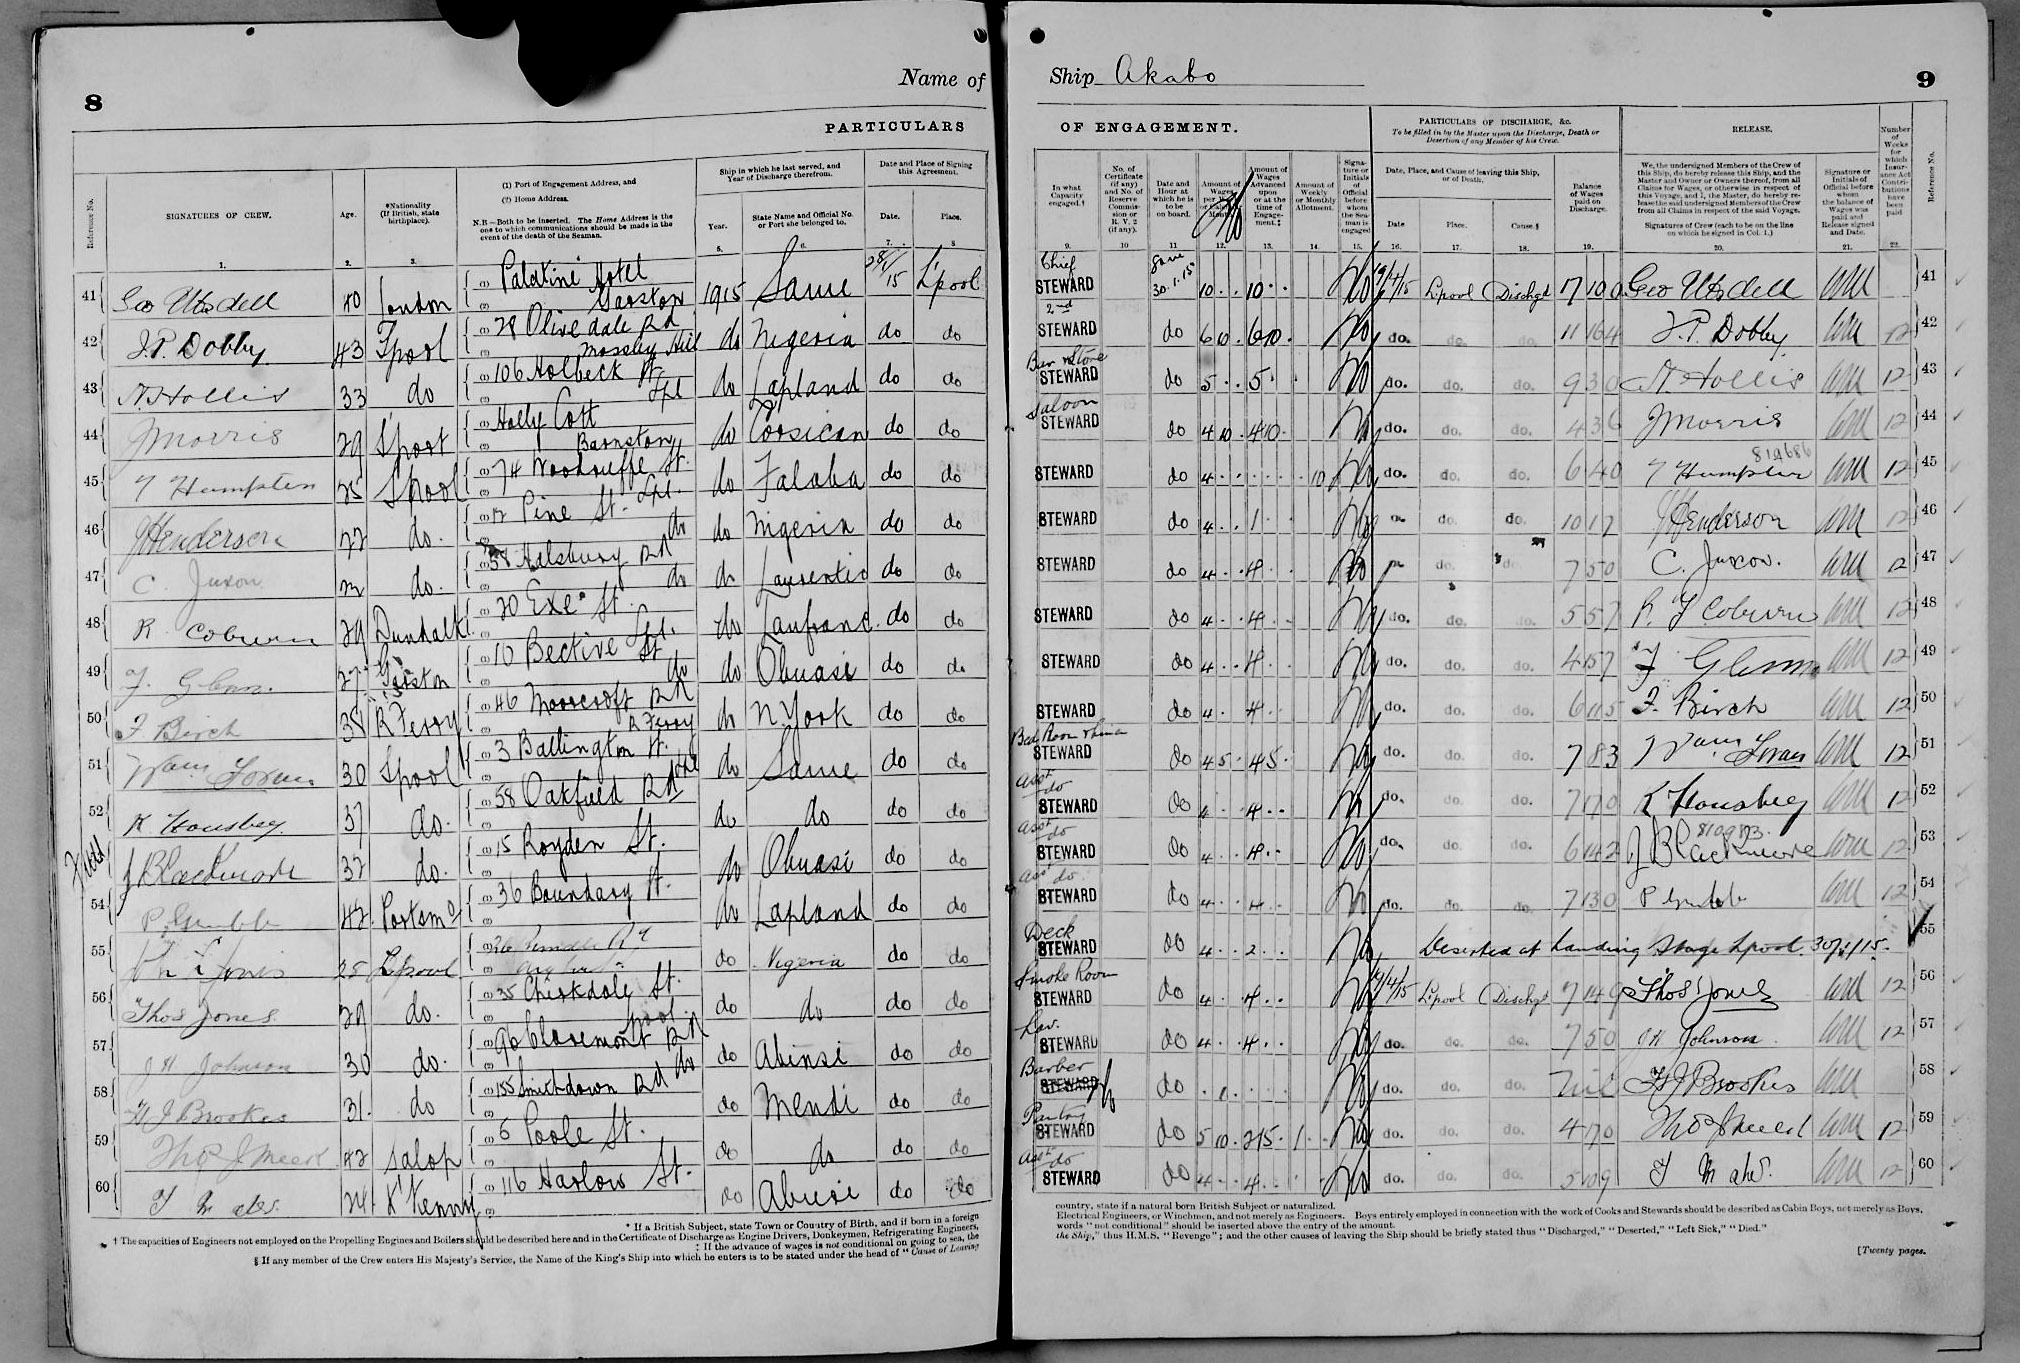 8
Name of
Ship Akabo
9
PARTICULARS
OF ENGAGEMENT.
Reference No.
SIGNATURES OF CREW.
Age.
*Nationality (If British, state birthplace).
(1) Port of Engagement Address, and
(2) Home Address.
N.B.—Both to be inserted. The Home Address is the one to which communications should be made in the event of the death of the Seaman.
Ship in which he last served, and Year of Discharge therefrom.
Year.
State Name and Official No. or Port she belonged to.
Date and Place of Signing this Agreement.
Date.
Place.
In what Capacity engaged.†
No. of Certificate (if any) and No. of Reserve Commission or R. V. 2 (if any).
Date and Hour at which he is to be on board.
Amount of Wages
Amount of Wages Advanced upon or at the time of Engagement.‡
Amount of Weekly or Monthly Allotment.
Signature or Initials of Official before whom the Seaman is engaged
PARTICULARS OF DISCHARGE, &c.
To be filled in by the Master upon the Discharge, Death or Desertion of any Member of his Crew.
Date, Place, and Cause of leaving this Ship, or of Death.
Date
Place.
Cause.§
Balance of Wages paid on Discharge.
RELEASE.
We, the undersigned Members of the Crew of this Ship, do hereby release this Ship, and the Master and Owner or Owners thereof, from all Claims for Wages, or otherwise in respect of this Voyage, and I, the Master, do hereby release the said undersigned Members of the Crew from all Claims in respect of the said Voyage.
Signatures of Crew (each to be on the line on which he signed in Col. 1.)
Signature or Initials of Official before whom the balance of Wages was paid and Release signed and Date.
Number of Weeks for which Insurance Act Contributions have been paid
Reference No.
1. 2. 3. 5. 6. 7. 8
9. 10 11 12. 13. 14. 15. 16. 17. 18. 19. 20. 21. 22.
41 Geo Utsdell 40 London Palatine Hotel Garston 1915 Same 28/1/15 L'pool
Chief STEWARD Same 30.1.15 10 10 L'pool Dischgd 17 10 0 Geo Utsdell 41
42 J.P. Dobby 43 L'pool 28 Olivedale Rd Mossley Hill do Nigeria do do
2nd STEWARD do 6 10 6 10 do. do. do. 11 16 4 J.P. Dobby 12 42
43 N Hollis 33 do 106 Holbeck St Lpl do Lapland do do
Bar & Store STEWARD do 5 5 do. do. do. 9 3 0 N Hollis 12 43
44 J Morris 29 Holly Cott Barnston do Corsican do do
Saloon STEWARD do 4 10 4 10 do. do. do. 4 3 6 J Morris 12 44
45 T Humpston 25 L'pool 74 Woodruffe St. Lpl. do Falaba do do
STEWARD do 4 10 do. do. do. 6 4 0 819686 12 45
46 J Henderson 22 do. 12 Pine St. do do Nigeria do do
STEWARD do 4 1 do. do. 10 17 J Henderson 12 46
47 C. Juxon do. 58 Halsbury Rd do do Laurentic do do
STEWARD do 4 4 do. do. 7 5 0 C. Juxon. 12 47
48 R Coburn 29 Dundalk. 20 Exe St. Lpl. do Lanfranc. do do
STEWARD do 4 4 do. do. do. 5 5 7 R Coburn 12 48
49 F. Glenn. 27 Garston 10 Bective St do do Obuasi do do
STEWARD do 4 4 do. do. do. 4 15 7 F Glenn 12 49
50 F Birch 38 R Ferry 46 Moorcroft Rd R Ferry do N York do do
STEWARD do 4 4 do. do. do. 6 11 5 F. Birch 12 50
51 Wam 30 L'pool 3 Ballington St. Lpl do Same do do
STEWARD do 4 5 4 5 do. do. do. 7 8 3 Wam 12 51
52 R Hansbey 37 do. 58 Oakfield Rd do do do do
Asst do STEWARD do 4 4 do. do. do. 7 17 0 R Hansbey 12 52
J Blackmore 32 do. 15 Royden St. do Obuasi do do
Asst do STEWARD do 4 4 do. do. do. 6 14 2 810983. J Blackmore 12 53
54 P. Grubb 42. Portsmo 36 Boundary St. do Lapland do do
Asst do. STEWARD do 4 4 do. do. do. 7 13 0 P Grubb 12 54
55 Jones 25 L'pool do Nigeria do do
Deck STEWARD do 4 2 Deserted at Landing Stage L'pool. 30/1/15. 55
56 Thos Jones 29 do. 35 Chirkdale St. L'pool. do do do do
Smoke Room STEWARD do 4 4 L'pool Dischgd 7 14 9 Thos Jones 12 56
57 J H Johnson 30 do. 96 Claremont Rd do do Abinsi do do
Lav. STEWARD do 4 4 do. do. do. 7 5 0 J H Johnson 12 57
58 H J Brookes 31. do 155 Smithdown Rd do Mendi do do
Barber STEWARD do . 1 . do. do. do. Nil H J Brookes 58
59 Thos J Meek 42 Salop 6 Poole St. do do do do
Pantry STEWARD do 5 10 2 15 1 do. do. do. 4 17 0 Thos J Meek 12 59
60 T Maher 24 K'Kenny 116 Harlow St. do Abinsi do do
Asst do STEWARD do 4 4 do. do. do. 5 10 9 T Maher 12 60
* If a British Subject, state Town or Country of Birth, and if born in a foreign
country, state if a natural born British Subject or naturalized.
† The capacities of Engineers not employed on the Propelling Engines and Boilers should be described here and in the Certificate of Discharge as Engine Drivers, Donkeymen, Refrigerating Engineers,
Electrical Engineers, or Winchmen, and not merely as Engineers. Boys entirely employed in connection with the work of Cooks and Stewards should be described as Cabin Boys, not merely as Boys.
‡ If the advance of wages is not conditional on going to sea, the
words "not conditional" should be inserted above the entry of the amount.
§ If any member of the Crew enters His Majesty's Service, the Name of the King's Ship into which he enters is to be stated under the head of "Cause of Leaving
the Ship," thus H.M.S. "Revenge"; and the other causes of leaving the Ship should be briefly stated thus "Discharged," "Deserted," "Left Sick," "Died."
[Twenty pages.